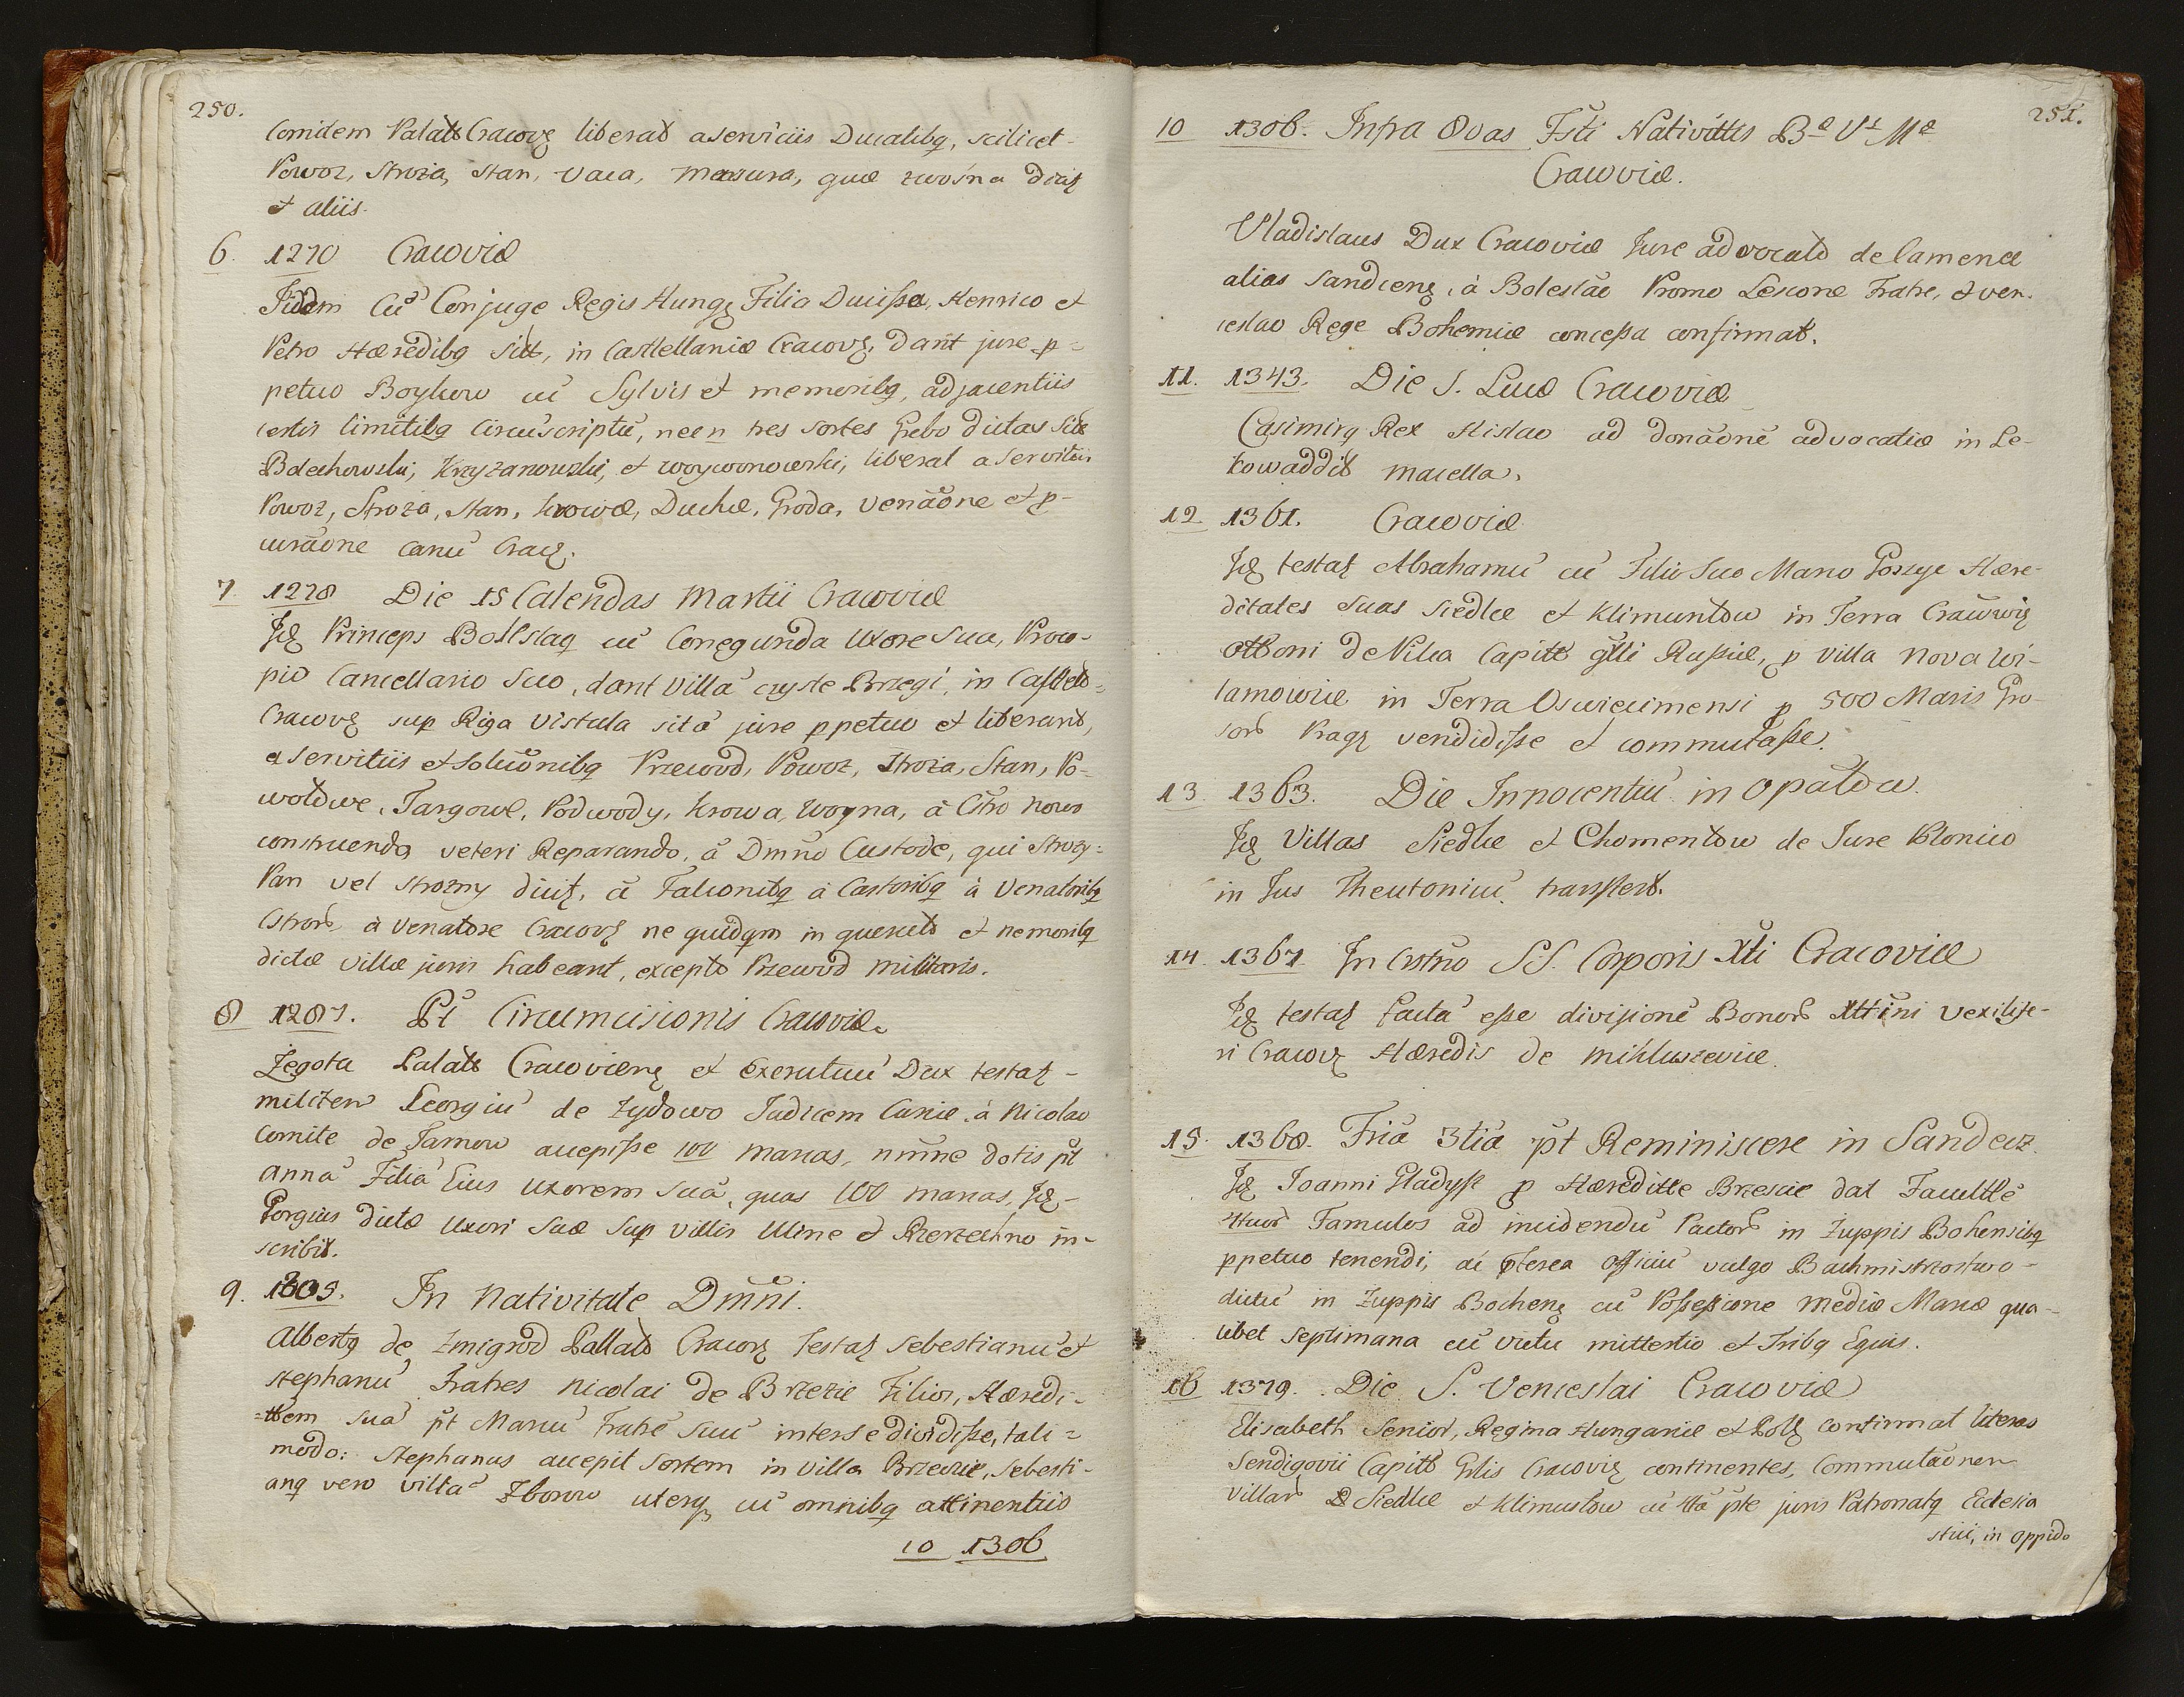 250.
Comitem Palatt Cracovę liberat a servićiis Ducalibq, scilicet
Powoz, Stroza, Stan, Vaca, Mensura, quæ zwośna dicitʒ
et aliis.
6. 1270 Cracoviæ
Iidem Cū Conjuge Regis Hungę Filia Ducissa, Henrico et
Petro Hæredibq, in Castellaniæ Cracovę, dant jure p=
petuo Boykow cū Sylvis et memoribq, adjacentiis
certis limitibq Circūscriptū, necn tres Sortes Grebo dictas
Bolechowski, Krzyzanowski, et woywonowski, liberat a Servitiis
Powoz, Stroza, Stan, krowæ, Duchæ, Groda, Venāone et p-
curāone canū Cracę.
7 1278 Die 15 Calendas Martii Cracoviæ
Idę Princeps Bollslaq cū Conegunda Uxore Sua, Proco-
pio Cancellario Suo, dant Villā czyste Brzegi, in Castell=
Cracovę sup Riga Vistula sitā jure ppetuo et liberant,
a Servitiis et Soluōnibq Przewod, Powoz, Stroza, Stan, Po-
wołowe, Targowe, Podwody, krowa, woyna, à Cstro novo
construendo veteri Reparando, à Dmno Custode, qui Strozy=
Pan vel Strozny dicitʒ, à Falconibq à Castoribq à Venatoribq
Cstror, à Venatore Cracovę ne quidqm in quercetis et nemoribq
dictæ villæ juris habeant, excepto Przewod militaris.
8 1287. Pt Circumcisionis Cracoviæ
Zegota Palatt Cracovienę et Executivū Dux testatʒ -
militem Georgiū de Zydowo Judicem Curiæ à Nicolao
Comite de Tarnow accepisse 100 marcas, nmine dotis pt
Annā Filiā Eius Uxorem Suā, quas 100 marcas, Idę-
Gorgius dictæ Uxori Suæ Sup villis Uline et in-
scribit.
9. 1305. In Nativitate Dmni.
Albertq de Zmigrod Pallatt Cracovę testatʒ Sebestianū et
Stephanū Fratres Nicolai de Brzezie Filios, Hæredi-
=ttem Suā pt Marcū Fratrē Suū inter se dividisse, tali=
modo: Stephanus accepit Sortem in Villa Brzezie, Sebesti-
anq vero villā Zborow uterqʒ cū omnibq attinentiis
10 1306
251.
10 1306. Infra Ovas Fsti Nativittis Bæ Vs Mæ
Cracoviæ.
Vladislaus Dux Cracoviæ Jure advocato de Camena
alias Sandecenę, à Boleslāo Promo Lescone Fratre, et Ven-
ceslao Rege Bohemiæ concessa confirmat.
11. 1343. Die S. Lucæ Cracoviæ
Casimirq Rex Stislao ad donāonē advocatiæ in Le-
kow addit macella.
12 1361. Cracoviæ
Idę testatʒ Abrahamū cū Filio Suo Marco Gorzye Hære-
ditates Suas Siedlce et Klimuntow in Terra Cracovię
Ottoni de Pilca Capitt Glli Russiæ, p Villa Nova Wi-
lamowice in Terra Oswiecimensi p 500 Marcis Gro-
sor Pragę vendidisse et commutasse.
13 1363. Die Innocentiū in Opatow.
Idę Villas Siedlce et Chomentow de Jure Plonico
in Jus Theutonicū transfert.
14. 1367. In Crstno SS. Corporis Xti Cracoviæ
Idę testatʒ factā esse divisionē Bonor Xttini Vexilife-
ri Cracovę Hæredis de Mikluszewice.
15. 1368. Friā 3tiā pt Reminiscere in Sandecz.
Idę Joanni Gladysz p Hæreditte Brzescie dat Facultte
4tuor Famulos ad incidendū Pactor in Zuppis Bohensibq
ppetuo tenendi, ac pterea Officiū vulgo Bachmistrzostwo -
dictū in Zuppis Bochenę cū Possessione mediæ Marcæ qua-
libet Septimana cū victu mittertio et Tribq Equis.
16 1379. Die S. Venceslai Cracoviæ
Elisabeth Senior, Regina Hungariæ et Polę confirmat literas
Sendigovii Capitt Gtlis Cracovię continentes, Commutāonem
Villar Siedlce et Klimuntow cū ttā pte juris Patronatq Ecclesia
stici, in Oppido